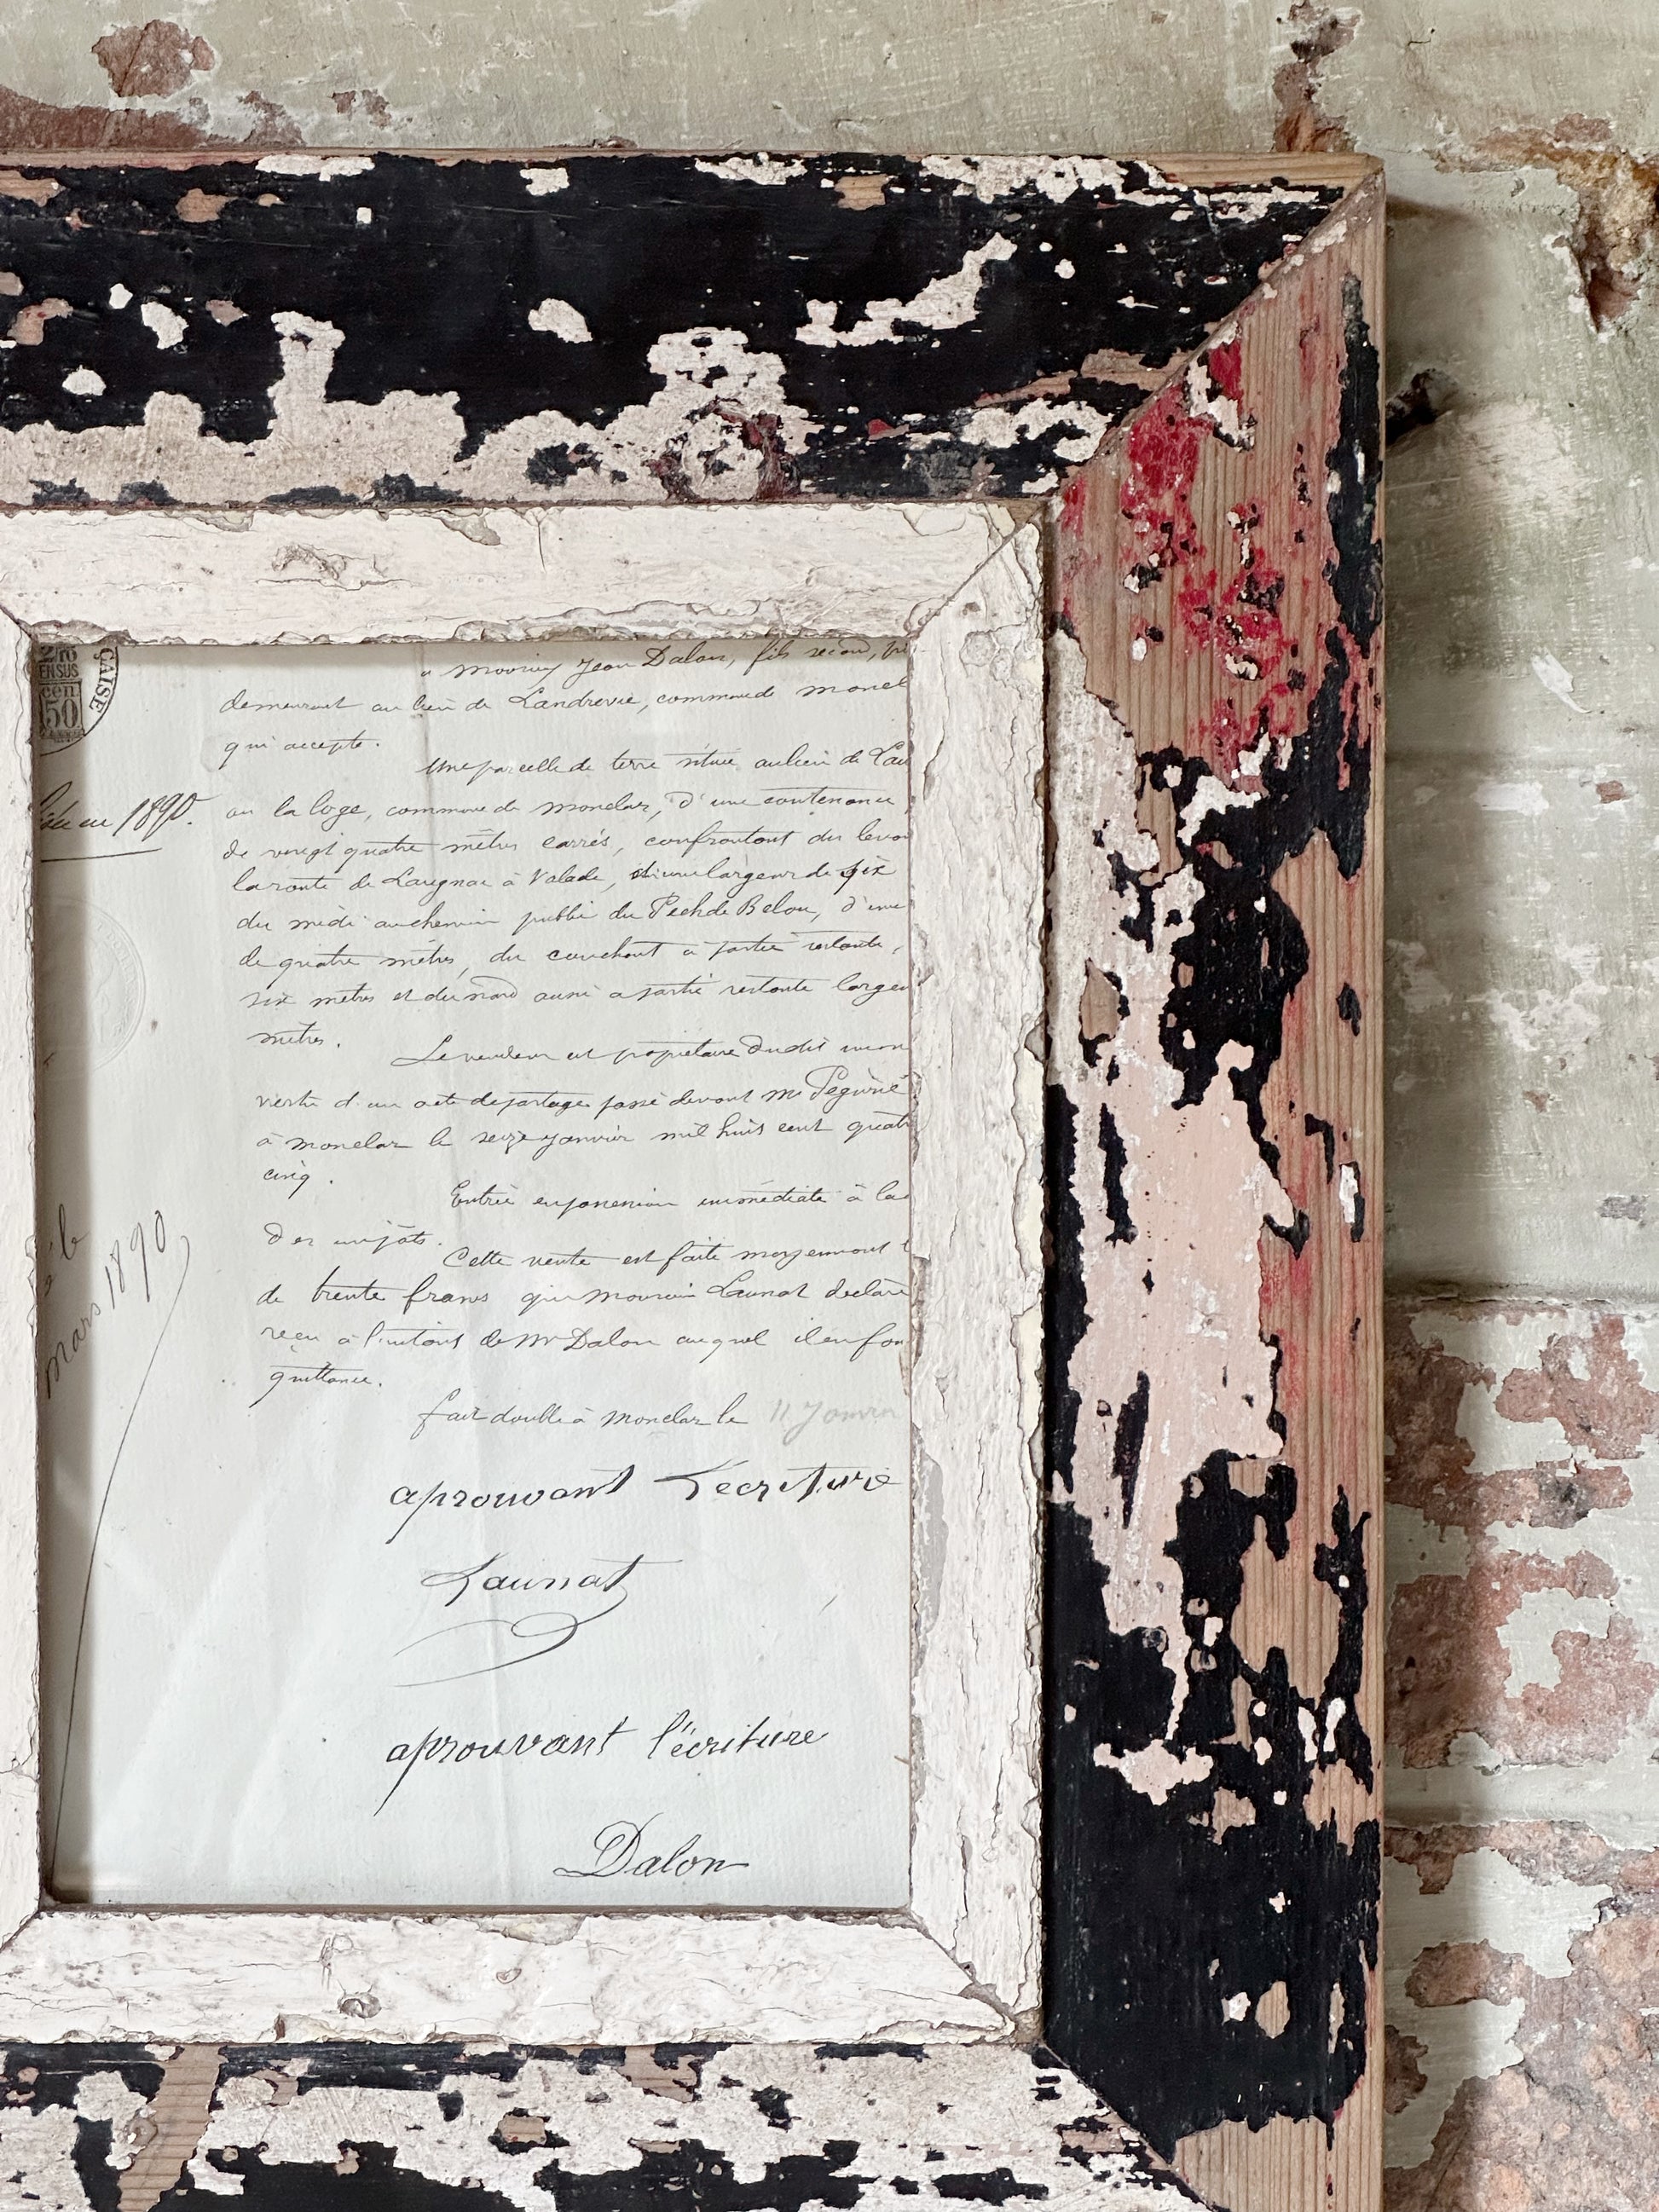 2/10
EN SUS
cen
50
ÇAISE
a monsieur Jean Dalon, fils second,
demeurant au lieu de Landrevie, commune de moncl
qui accepte.
Une parcelle de terre située au lieu de Lau
ou la loge, commune de monclar, d'une contenance
1890.
de vingt quatre mètres carrés, confrontant du leva
la route de Laugnac à Valade, d'une largeur de six
du midi au chemin public du Pech de Belou, d'une
de quatre mètres, du couchant a partie restante,
six mètres et du nord aussi a partie restante large
mètres.
Le vendeur est propriétaire dudit imm
vertu d'un acte de partage passé devant Me
à monclar le seize janvier mil huit cent quatr
cinq.
Entrée en possession immédiate à la
des impôts.
mars 1890
Cette vente est faite moyennant
de trente francs que monsieur Launat déclare
reçu à l'instant de Mr Dalon auquel il en fou
quittance.
fait double à monclar le 11 Janvier
aprouvant L'écriture
Launat
aprouvant l'écriture
Dalon